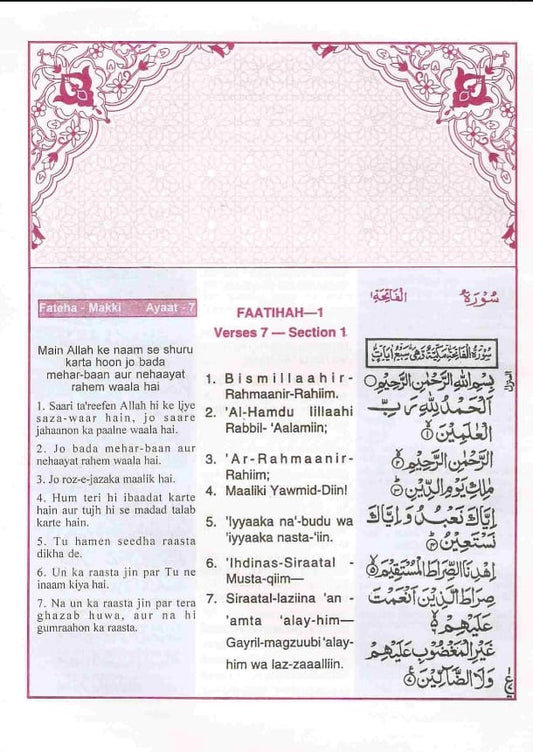 Fateha - Makki Ayaat - 7
Main Allah ke naam se shuru
karta hoon jo bada
mehar-baan aur nehaayat
rahem waala hai
1. Saari ta'reefen Allah hi ke liye
saza-waar hain, jo saare
jahaanon ka paalne waala hai.
2. Jo bada mehar-baan aur
nehaayat rahem waala hai.
3. Jo roz-e-jazaka maalik hai.
4. Hum teri hi ibaadat karte
hain aur tujh hi se madad talab
karte hain.
5. Tu hamen seedha raasta
dikha de.
6. Un ka raasta jin par Tu ne
inaam kiya hai.
7. Na un ka raasta jin par tera
ghazab huwa, aur na hi
gumraahon ka raasta.
FAATIHAH—1
Verses 7 — Section 1
1. Bismillaahir-
Rahmaanir-Rahiim.
2. 'Al-Hamdu lillaahi
Rabbil- 'Aalamiin;
3. 'Ar-Rahmaanir-
Rahiim;
4. Maaliki Yawmid-Diin!
5. 'Iyyaaka na'-budu wa
'iyyaaka nasta-'iin.
6. 'Ihdinas-Siraatal -
Musta-qiim—
7. Siraatal-laziina 'an -
'amta 'alay-him—
Gayril-magzuubi 'alay-
him wa laz-zaaalliin.
سُوْرَةُ الْفَاتِحَةِ
سُوْرَةُ الْفَاتِحَةِ مَكِّيَّةٌ وَّهِيَ سَبْعُ اٰيَاتٍ
بِسْمِ اللّٰهِ الرَّحْمٰنِ الرَّحِيْمِ
اَلْحَمْدُ لِلّٰهِ رَبِّ
الْعٰلَمِيْنَ ۝١
الرَّحْمٰنِ الرَّحِيْمِ ۝٢
مٰلِكِ يَوْمِ الدِّيْنِ ۝٣
اِيَّاكَ نَعْبُدُ وَاِيَّاكَ
نَسْتَعِيْنُ ۝٤
اِهْدِنَا الصِّرَاطَ الْمُسْتَقِيْمَ ۝٥
صِرَاطَ الَّذِيْنَ اَنْعَمْتَ
عَلَيْهِمْ ۝٦
غَيْرِ الْمَغْضُوْبِ عَلَيْهِمْ
وَلَا الضَّآلِّيْنَ ۝٧